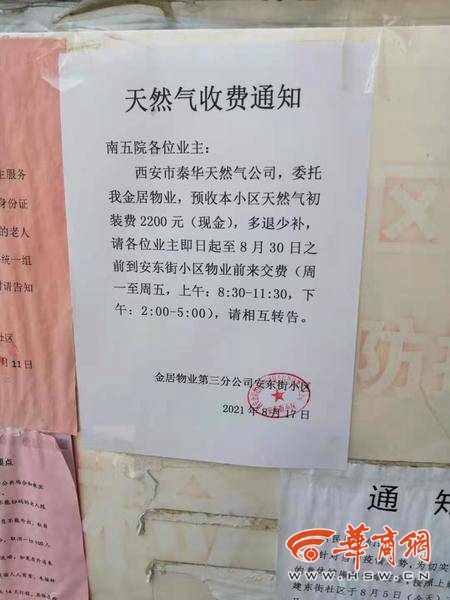 天然气收费通知
南五院各位业主：
西安市秦华天然气公司，委托
我金居物业，预收本小区天然气初
装费 2200 元（现金），多退少补，
请各位业主即日起至 8 月 30 日之
前到安东街小区物业前来交费（周
一至周五，上午：8:30-11:30，下
午：2:00-5:00），请相互转告。
金居物业第三分公司安东街小区
2021 年 8 月 17 日
主服务
身份证
的老人
统一组
请告知
社区
月 11 日
通 知
建东街社区于 8 月 5 日（今天）
华商网
WWW.HSW.CN